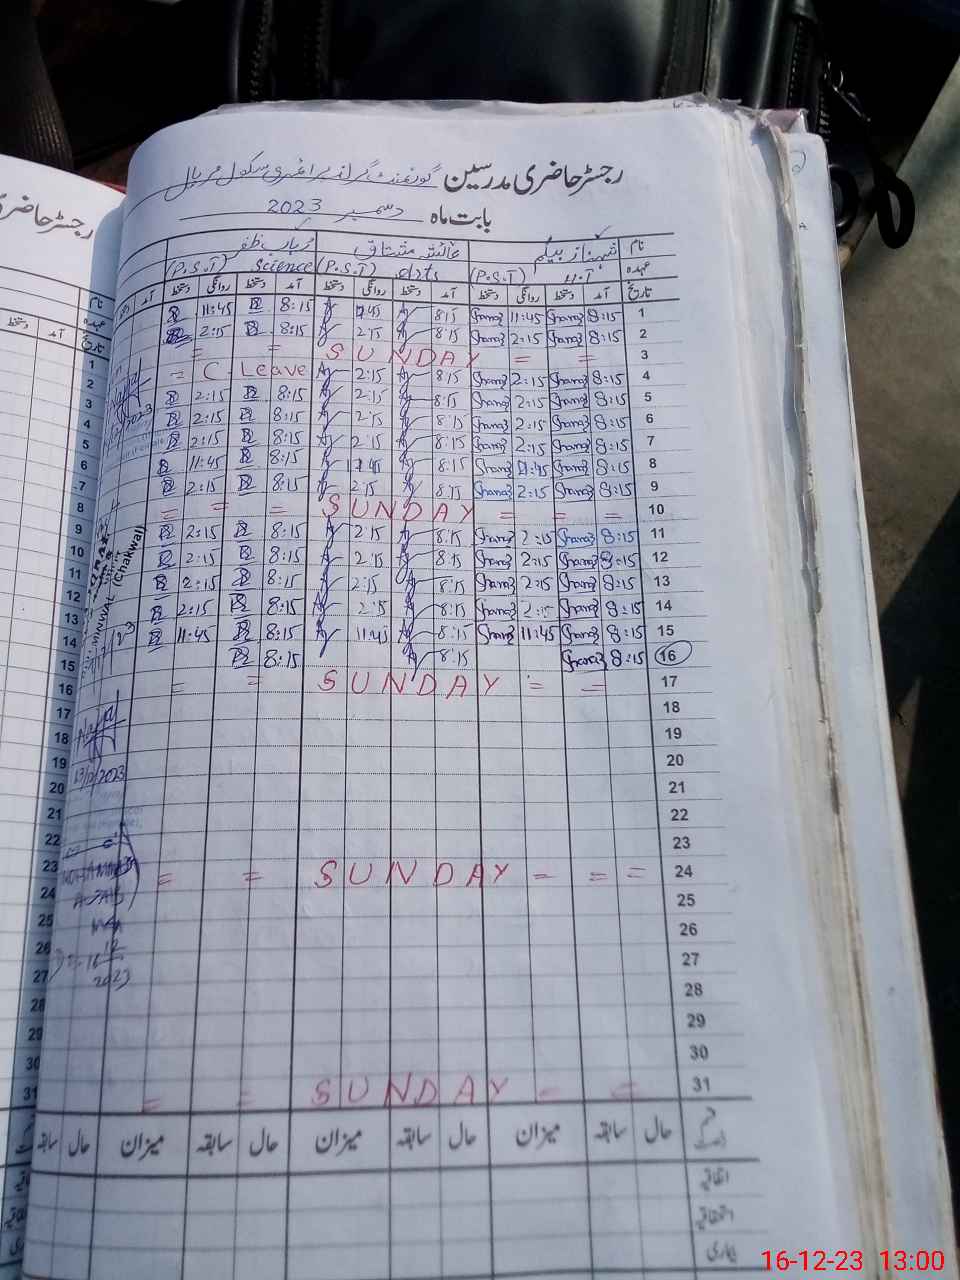 رجسٹر حاضری مدرسین گورنمنٹ گرلز پرائمری سکول مریال
بابت ماہ دسمبر 2023
نام شہناز بیگم عائشہ مشتاق رباب ظفر
عہدہ (P.S.T) arts (P.S.T) Science (P.S.T)
تاریخ آمد دستخط روانگی دستخط آمد دستخط روانگی دستخط آمد دستخط روانگی دستخط
1 8:15 Shanaz 11:45 Shanaz 8:15 11:45 8:15 11:45
2 8:15 Shanaz 2:15 Shanaz 8:15 2:15 8:15 2:15
3 = = SUNDAY = =
4 8:15 Shanaz 2:15 Shanaz 8:15 2:15 C. Leave =
5 8:15 Shanaz 2:15 Shanaz 8:15 2:15 8:15 2:15
6 8:15 Shanaz 2:15 Shanaz 8:15 2:15 8:15 2:15
7 8:15 Shanaz 2:15 Shanaz 8:15 2:15 8:15 2:15
8 8:15 Shanaz 11:45 Shanaz 8:15 11:45 8:15 11:45
9 8:15 Shanaz 2:15 Shanaz 8:15 2:15 8:15 2:15
10 = = = SUNDAY = = =
11 8:15 Shanaz 2:15 Shanaz 8:15 2:15 8:15 2:15
12 8:15 Shanaz 2:15 Shanaz 8:15 2:15 8:15 2:15
13 8:15 Shanaz 2:15 Shanaz 8:15 2:15 8:15 2:15
14 8:15 Shanaz 2:15 Shanaz 8:15 2:15 8:15 2:15
15 8:15 Shanaz 11:45 Shanaz 8:15 11:45 8:15 11:45
16 8:15 Shanaz 8:15 8:15
17 = = SUNDAY = =
18
19
20
21
22
23
24 = = SUNDAY = = =
25
26
27
28
29
30
31 = = SUNDAY = =
حال سابقہ میزان حال سابقہ میزان حال سابقہ میزان حال سابقہ
اتفاقیہ
استحقاقیہ
بیماری
رجسٹر حاضری
نام
عہدہ
تاریخ
آمد دستخط
1
2
3
4
5
6
7
8
9
10
11
12
13
14
15
16
17
18
19
20
21
22
23
24
25
26
27
28
29
30
31
(Chakwal)
13/12/2023
12
2023
16-12-23 13:00